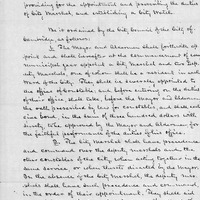 providing for the appointment and prescribing the duties
of City Marshal, and establishing a City Watch.
Be it ordained by the City Council of the City of
Cambridge, as follows:
1. The Mayor and Aldermen shall forthwith ap-
point and shall hereafter at the commencement of each
municipal year appoint a City Marshal and two Dep-
uty Marshals, one of whom shall be a resident in each
Ward of the City. They shall be severally appointed to
the office of Constable, and before entering on the duties
of their office, shall take before the Mayor and Aldermen
the oath prescribed by law for constables, and shall each
give bond, in the sum of three hundred dollars with
surety to be approved by the Mayor and Aldermen for
the faithful performance of the duties of his office.
2. The City Marshal shall have precedence
and command over the deputy marshals and the
other constables of the City, when acting together in the
same service, or when thereto directed by the Mayor.
In the absence of the City Marshal, the deputy mar-
shals shall have and precedence and command in
the order of their appointment. They shall aid